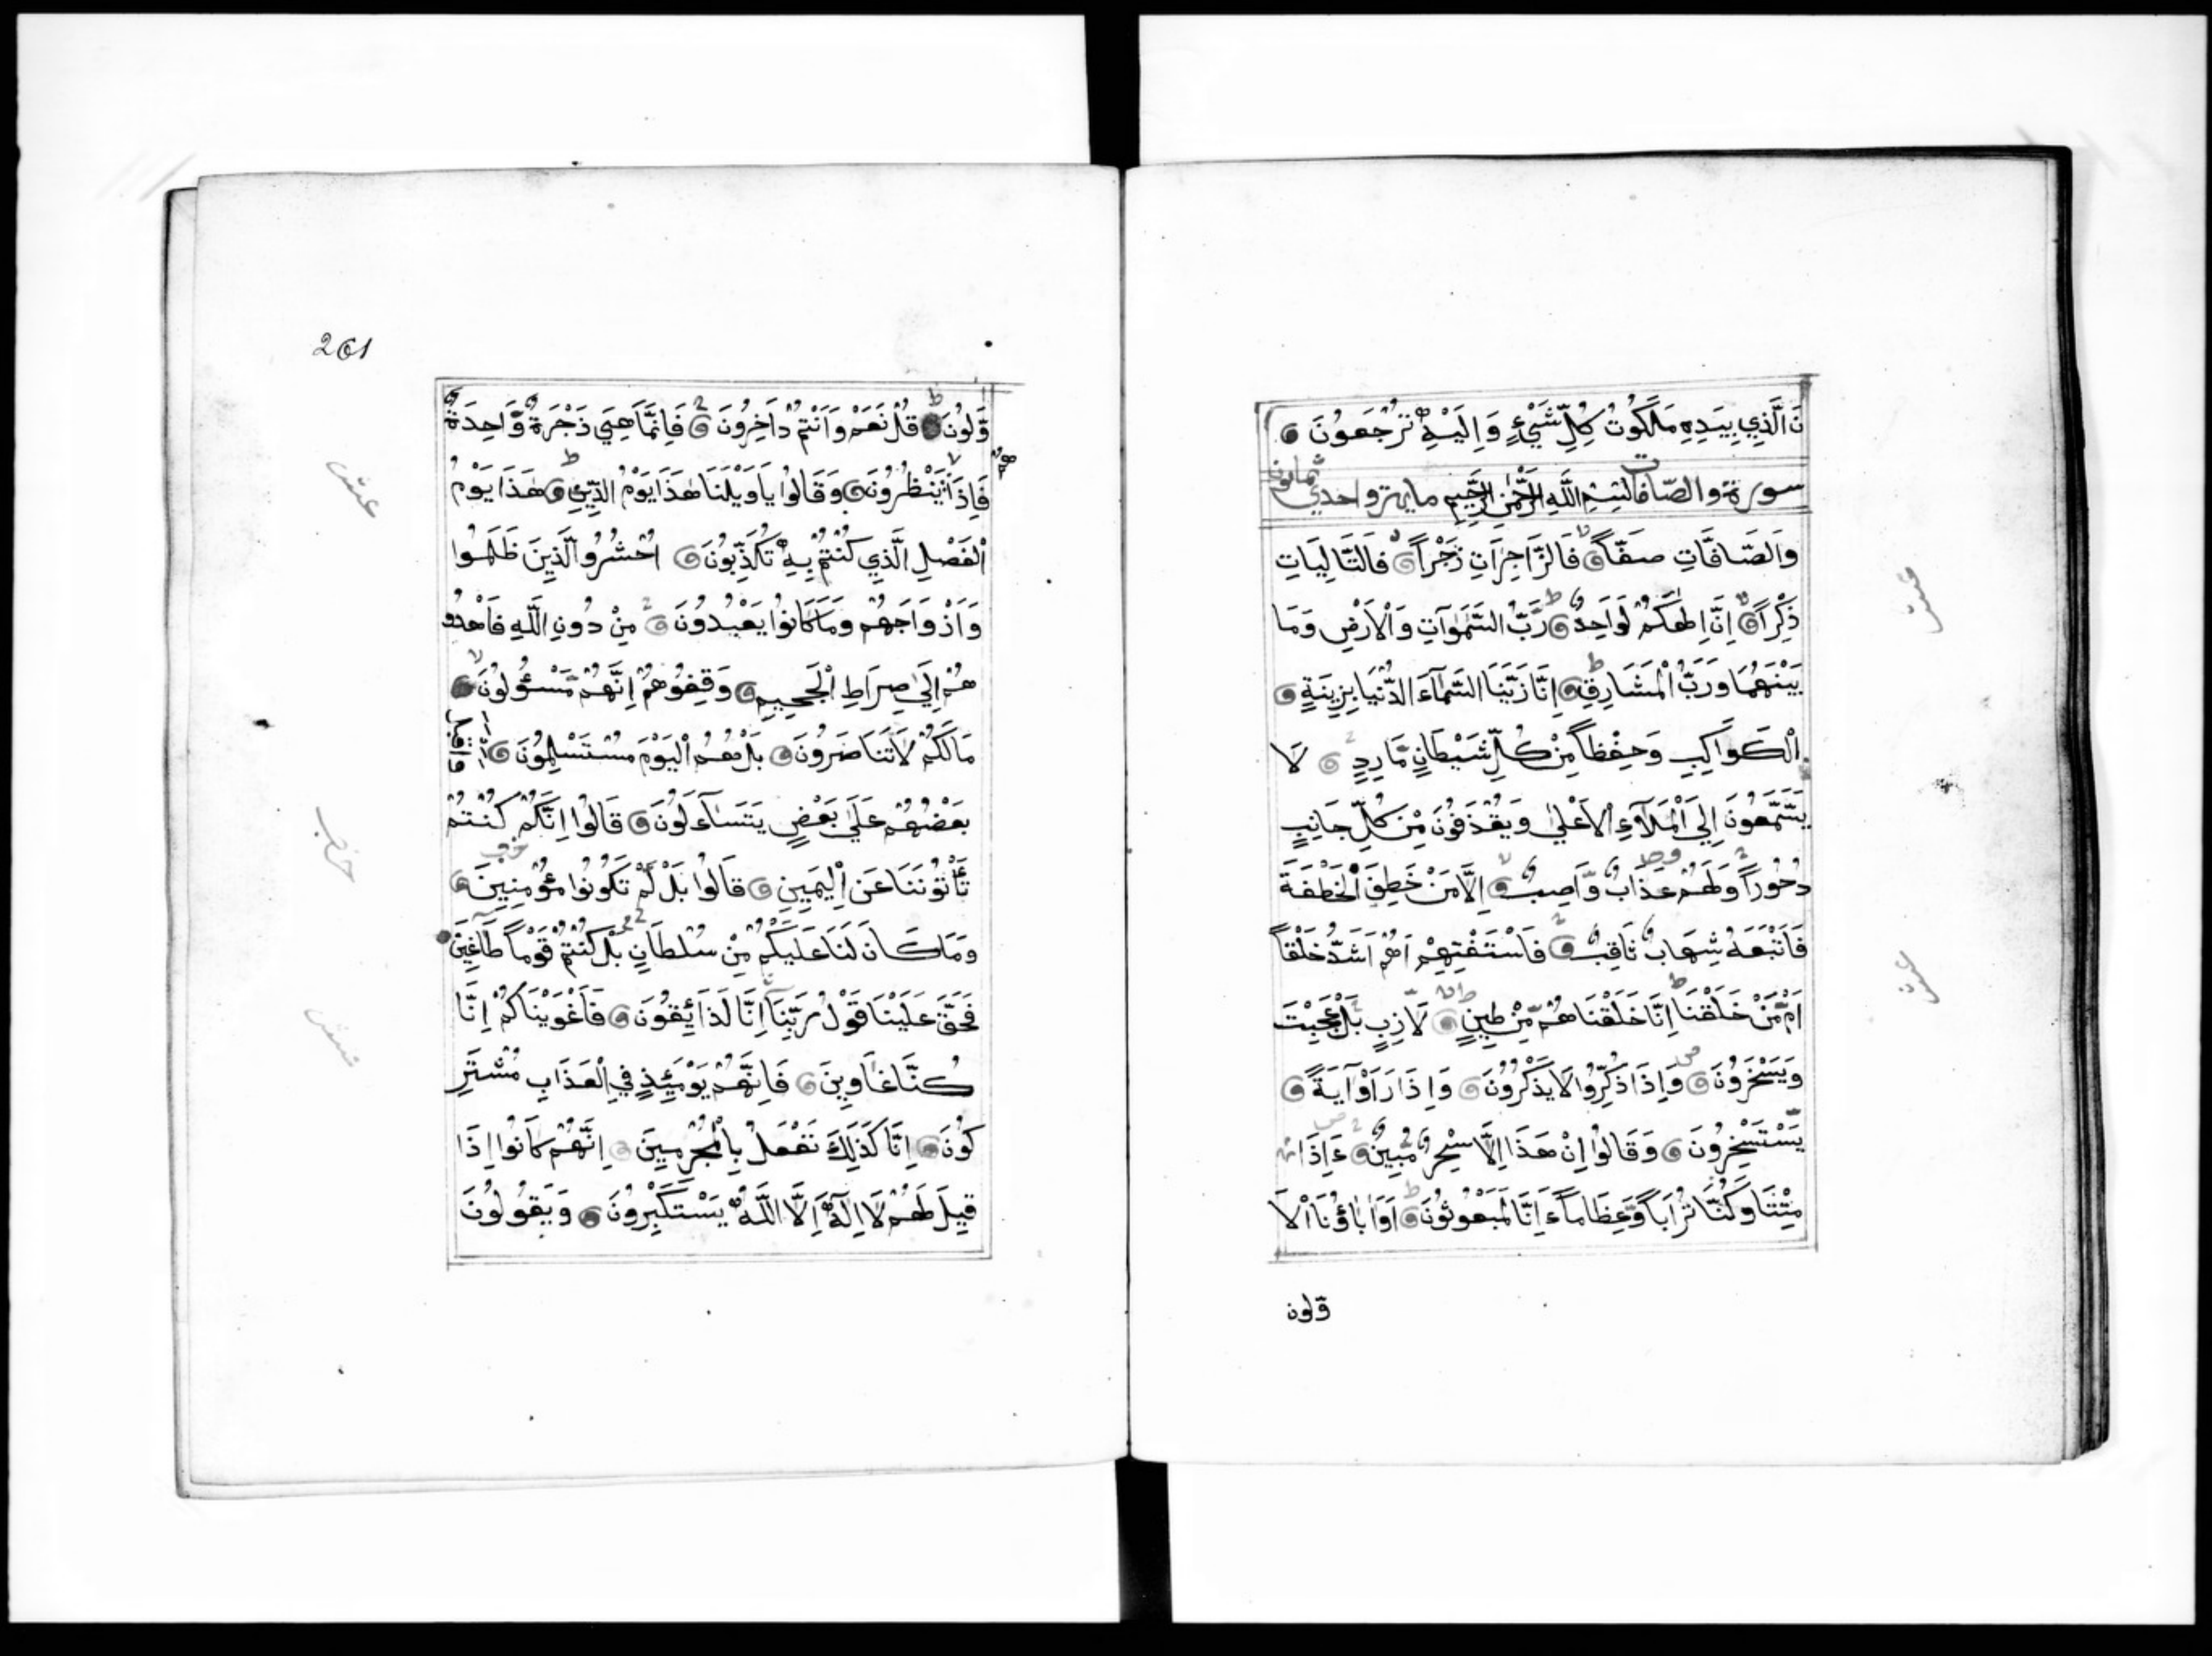 نَ الَّذِي بِيَدِهِ مَلَكُوتُ كُلِّ شَيْءٍ وَاِلَيْهِ تُرْجَعُونَ
سورة والصّافات بِسْمِ اللَّهِ الرَّحْمٰنِ الرَّحِيمِ مايه و احدي ثمانون
وَالصَّافَّاتِ صَفّاً فَالزَّاجِرَاتِ زَجْراً فَالتَّالِيَاتِ
ذِكْراً اِنَّ اِلٰهَكُمْ لَوَاحِدٌ رَبُّ السَّمٰوَاتِ وَالْاَرْضِ وَمَا
بَيْنَهُمَا وَرَبُّ الْمَشَارِقِ اِنَّا زَيَّنَّا السَّمَآءَ الدُّنْيَا بِزِينَةٍ
الْكَوَاكِبِ وَحِفْظاً مِنْ كُلِّ شَيْطَانٍ مَّارِدٍ لَا
يَسَّمَّعُونَ اِلَي الْمَلَاءِ الْاَعْلٰي وَيُقْذَفُونَ مِنْ كُلِّ جَانِبٍ
دُحُوراً وَلَهُمْ عَذَابٌ وَّاصِبٌ اِلَّا مَنْ خَطِفَ الْخَطْفَةَ
فَاَتْبَعَهُ شِهَابٌ ثَاقِبٌ فَاسْتَفْتِهِمْ اَهُمْ اَشَدُّ خَلْقاً
اَمْ مَّنْ خَلَقْنَا اِنَّا خَلَقْنَاهُمْ مِّنْ طِينٍ لَّازِبٍ بَلْ عَجِبْتَ
وَيَسْخَرُونَ وَاِذَا ذُكِّرُوا لَا يَذْكُرُونَ وَاِذَا رَاَوْا آيَةً
يَّسْتَسْخِرُونَ وَقَالُوا اِنْ هَذَا اِلَّا سِحْرٌ مُّبِينٌ ءَاِذَا
مِتْنَا وَكُنَّا تُرَاباً وَّعِظَاماً ءَاِنَّا لَمَبْعُوثُونَ اَوَاٰبَاؤُنَا الْاَ
وّلون
عشر
عشر
261
وَّلُونَ قُلْ نَعَمْ وَاَنْتُمْ دَاخِرُونَ فَاِنَّمَا هِيَ زَجْرَةٌ وَّاحِدَةٌ
فَاِذَا هُمْ يَنْظُرُونَ وَقَالُوا يَاوَيْلَنَا هٰذَا يَوْمُ الدِّينِ هٰذَا يَوْمُ
الْفَصْلِ الَّذِي كُنْتُمْ بِهِ تُكَذِّبُونَ اُحْشُرُوا الَّذِينَ ظَلَمُوا
وَاَزْوَاجَهُمْ وَمَا كَانُوا يَعْبُدُونَ مِنْ دُونِ اللَّهِ فَاهْدُو
هُمْ اِلَيٰ صِرَاطِ الْجَحِيمِ وَقِفُوهُمْ اِنَّهُمْ مَّسْؤُلُونَ
مَا لَكُمْ لَا تَنَاصَرُونَ بَلْ هُمُ الْيَوْمَ مُسْتَسْلِمُونَ وَاَقْبَلَ
بَعْضُهُمْ عَلَيٰ بَعْضٍ يَتَسَآءَلُونَ قَالُوا اِنَّكُمْ كُنْتُمْ
تَأْتُونَنَا عَنِ الْيَمِينِ قَالُوا بَلْ لَّمْ تَكُونُوا مُؤْمِنِينَ
وَمَا كَانَ لَنَا عَلَيْكُمْ مِّنْ سُلْطَانٍ بَلْ كُنْتُمْ قَوْماً طَاغِينَ
فَحَقَّ عَلَيْنَا قَوْلُ رَبِّنَا اِنَّا لَذَائِقُونَ فَاَغْوَيْنَاكُمْ اِنَّا
كُنَّا غَاوِينَ فَاِنَّهُمْ يَوْمَئِذٍ فِي الْعَذَابِ مُشْتَرِ
كُونَ اِنَّا كَذَلِكَ نَفْعَلُ بِالْمُجْرِمِينَ اِنَّهُمْ كَانُوا اِذَا
قِيلَ لَهُمْ لَا اِلٰهَ اِلَّا اللَّهُ يَسْتَكْبِرُونَ وَيَقُولُونَ
عشر
حزب